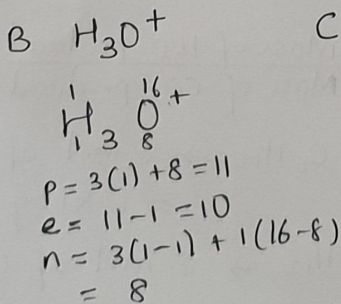 B H₃O⁺ C
¹₁H₃ ¹⁶₈O⁺
p = 3(1) + 8 = 11
e = 11 - 1 = 10
n = 3(1-1) + 1(16-8)
= 8